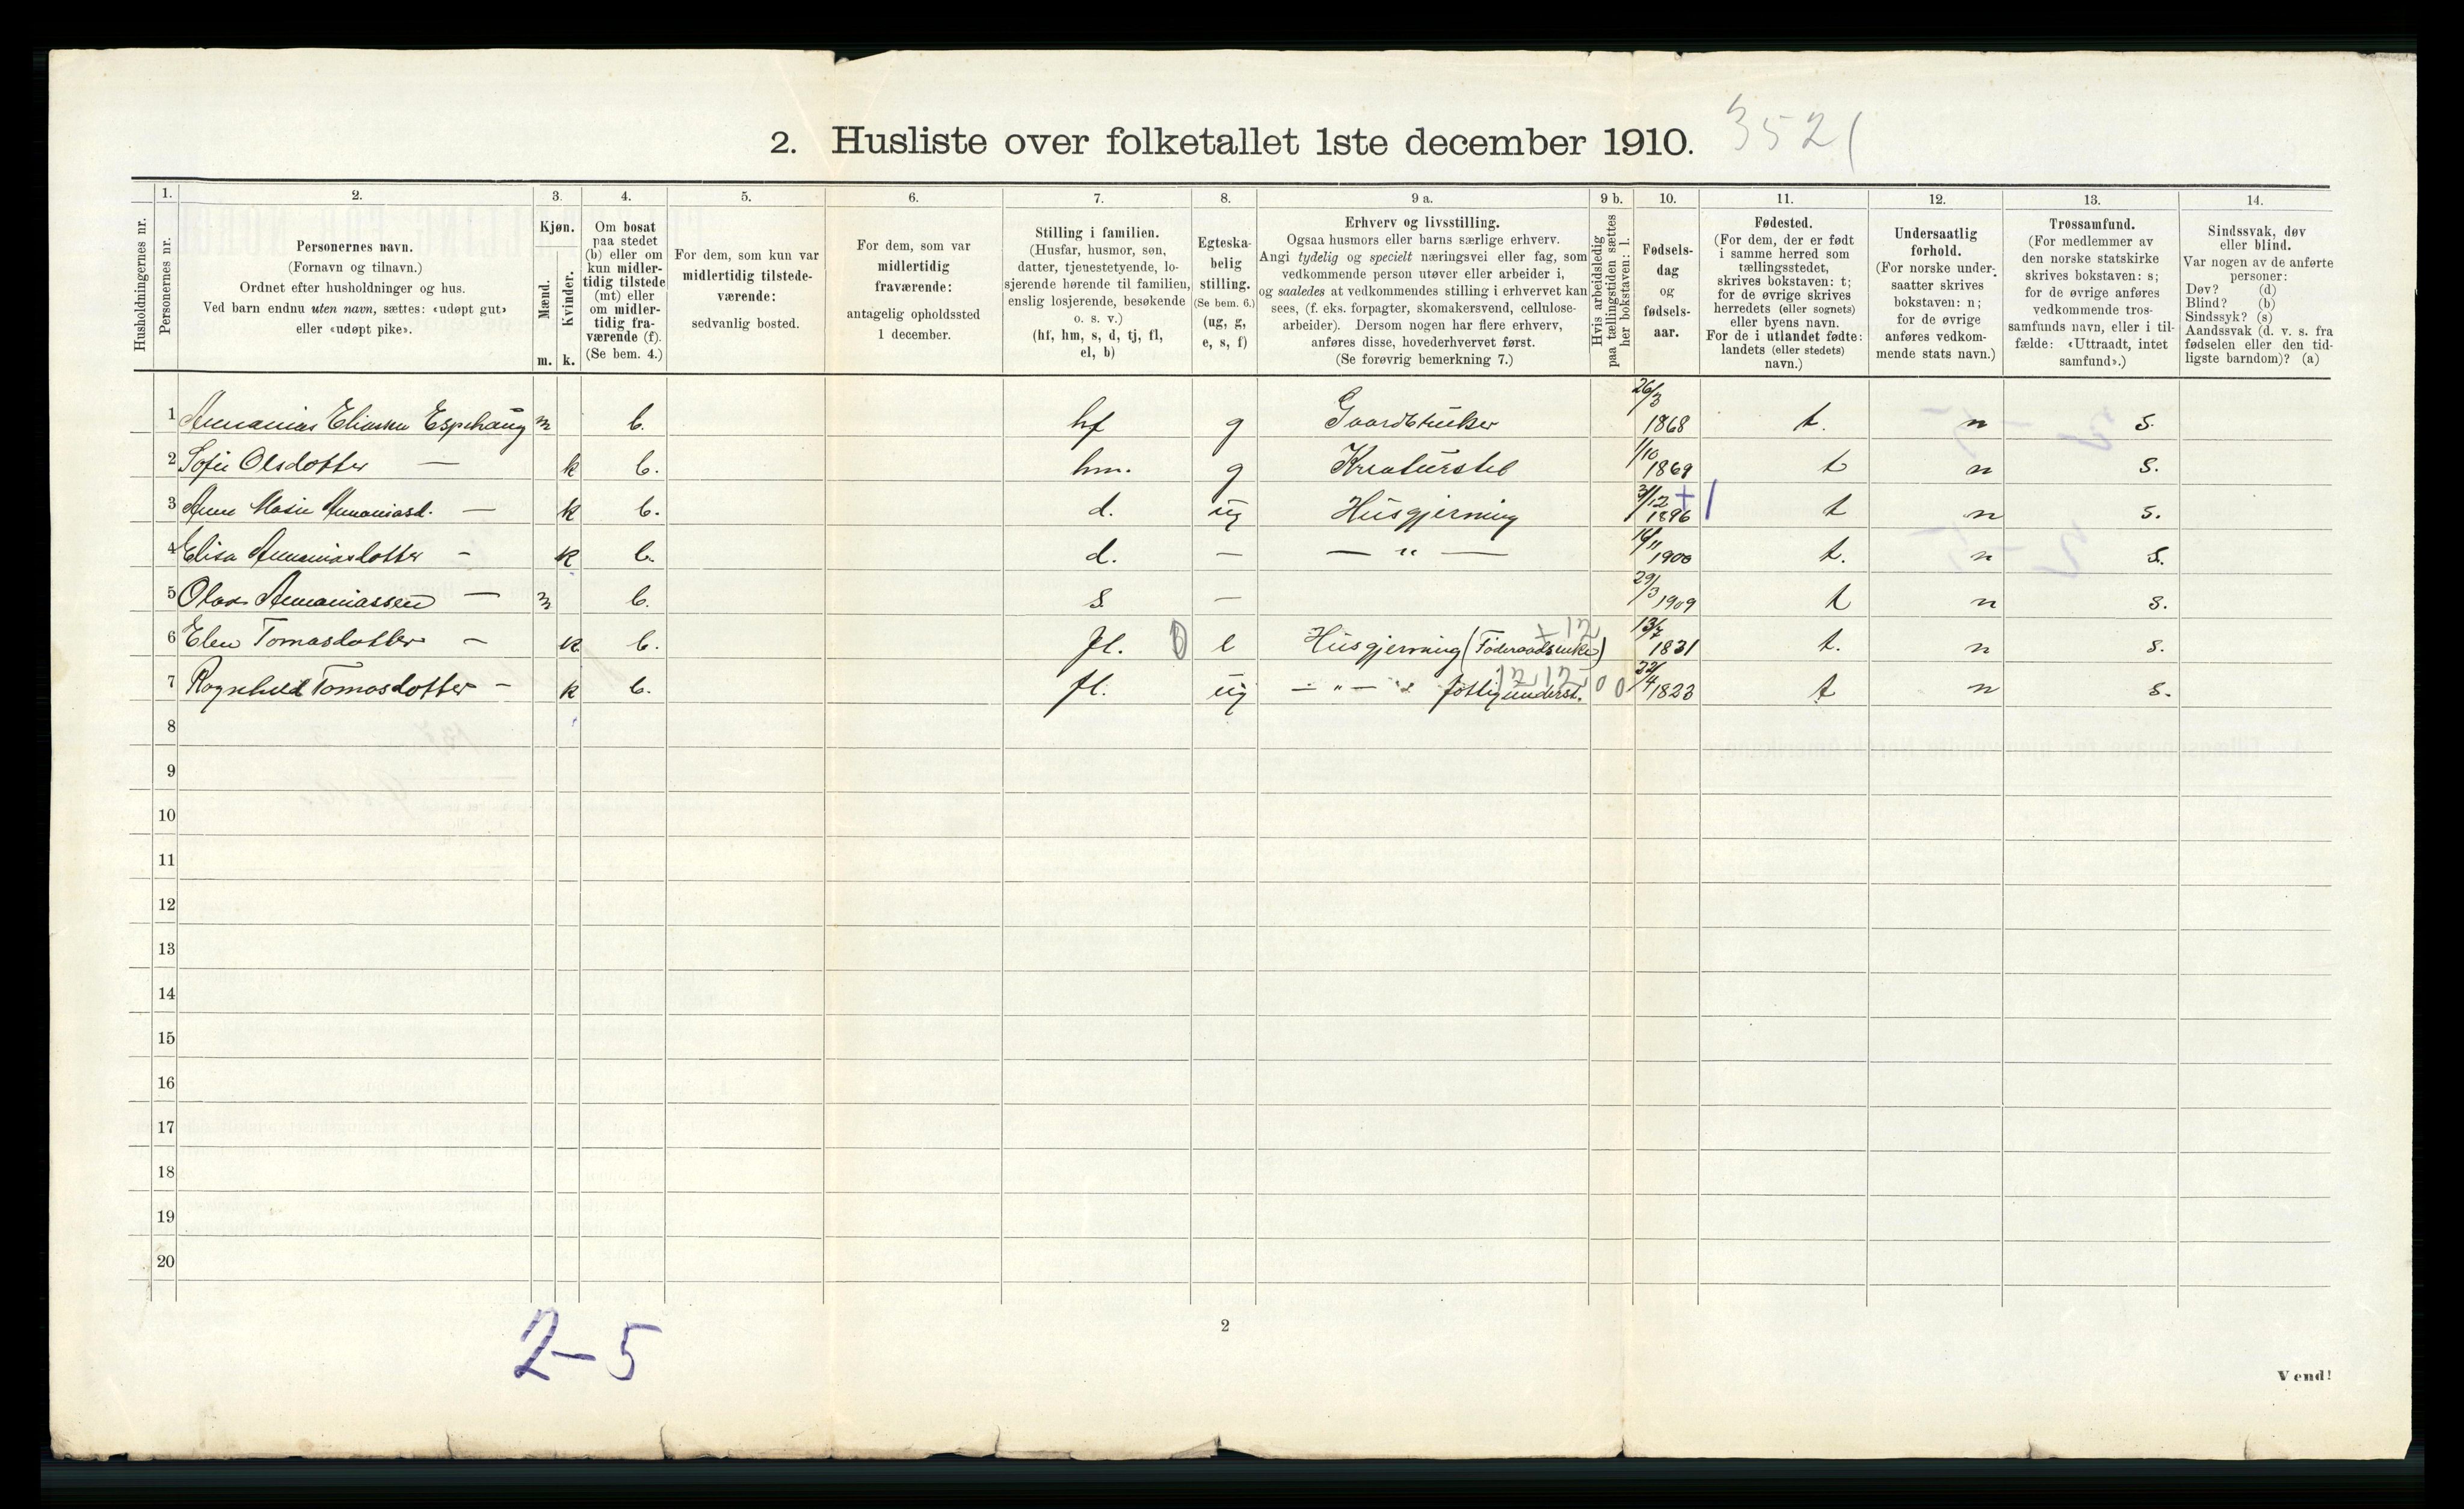 2. Husliste over folketallet 1ste december 1910. 3521
Husholdningernes nr.
1.
Personernes nr.
2.
Personernes navn.
(Fornavn og tilnavn.)
Ordnet efter husholdninger og hus.
Ved barn endnu uten navn, sættes: «udøpt gut»
eller «udøpt pike».
3.
Kjøn.
Mænd.
Kvinder.
m. k.
4.
Om bosat
paa stedet
(b) eller om
kun midler-
tidig tilstede
(mt) eller
om midler-
tidig fra-
værende (f).
(Se bem. 4.)
5.
For dem, som kun var
midlertidig tilstede-
værende:
sedvanlig bosted.
6.
For dem, som var
midlertidig
fraværende:
antagelig opholdssted
1 december.
7.
Stilling i familien.
(Husfar, husmor, søn,
datter, tjenestetyende, lo-
sjerende hørende til familien,
enslig losjerende, besøkende
o. s. v.)
(hf, hm, s, d, tj, fl,
el, b)
8.
Egteska-
belig
stilling.
(Se bem. 6.)
(ug, g,
e, s, f)
9 a.
Erhverv og livsstilling.
Ogsaa husmors eller barns særlige erhverv.
Angi tydelig og specielt næringsvei eller fag, som
vedkommende person utøver eller arbeider i,
og saaledes at vedkommendes stilling i erhvervet kan
sees, (f. eks. forpagter, skomakersvend, cellulose-
arbeider). Dersom nogen har flere erhverv,
anføres disse, hovederhvervet først.
(Se forøvrig bemerkning 7.)
9 b.
Hvis arbeidsledig
paa tællingstiden sættes
her bokstaven: l.
10.
Fødsels-
dag
og
fødsels-
aar.
11.
Fødested.
(For dem, der er født
i samme herred som
tællingsstedet,
skrives bokstaven: t;
for de øvrige skrives
herredets (eller sognets)
eller byens navn.
For de i utlandet fødte:
landets (eller stedets)
navn.)
12.
Undersaatlig
forhold.
(For norske under-
saatter skrives
bokstaven: n;
for de øvrige
anføres vedkom-
mende stats navn.)
13.
Trossamfund.
(For medlemmer av
den norske statskirke
skrives bokstaven: s;
for de øvrige anføres
vedkommende tros-
samfunds navn, eller i til-
fælde: «Uttraadt, intet
samfund».)
14.
Sindssvak, døv
eller blind.
Var nogen av de anførte
personer:
Døv? (d)
Blind? (b)
Sindssyk? (s)
Aandssvak (d. v. s. fra
fødselen eller den tid-
ligste barndom)? (a)
1 Annanias Eliassen Espehaug m b. hf g Gaardbruker 26/3 1868 t. n s.
2 Sofie Olsdotter — k b. hm. g Kreaturstel 1/10 1869 t n s.
3 Anne Marie Annaniasd. — k b. d. ug Husgjerning 31/12 1896 + | t n s.
4 Elisa Annaniasdotter — k b. d. — — „ — 16/11 1900 t. n s.
5 Olav Annaniassen — m b. s. — 29/3 1909 t n s.
6 Elen Tomasdotter — k b. fl. 0 e Husgjerning (Føderaadsenke) + 12 13/7 1831 t. n s.
7 Ragnhild Tomasdotter — k b. fl. ug — „ — fattigunderst. 12 12 0 0 22/4 1823 t n s.
8
9
10
11
12
13
14
15
16
17
18
19
20
2-5
2
Vend!